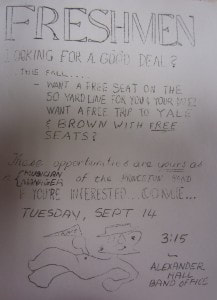 FRESHMEN
LOOKING FOR A GOOD DEAL?
THIS FALL....
- WANT A FREE SEAT ON THE
50 YARD LINE FOR YOU & YOUR
- WANT A FREE TRIP TO YALE
& BROWN WITH FREE
SEATS?
These opportunities are yours as
a MUSICIAN
MANAGER of the PRINCETON BAND
IF YOU'RE INTERESTED... COME...
TUESDAY, SEPT 14
3:15
ALEXANDER
HALL
BAND OFFICE